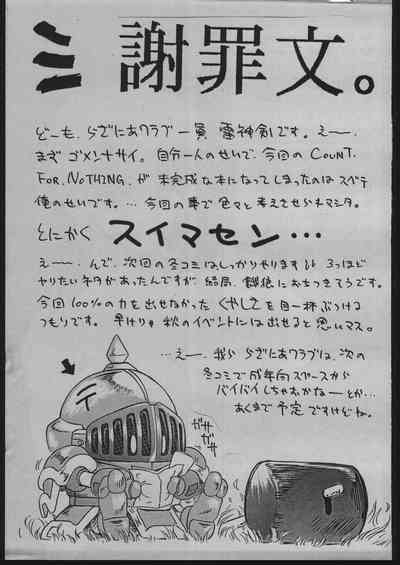 ミニ謝罪文。
どーも、らざにあクラブ一員 雷神剣です。えー---,
まず ゴメンナサイ。自分一人のせいで、今回の COUNT.
FOR.NOTHING.が 未完成な本になってしまったのはスベテ
俺のせいです。… 今回の事で色々と考えさせられマシタ。
とにかく スイマセン…
えー---, んで、次回の冬コミはしっかりやります!! 3つほど
ヤりたいネタがあったんですが 結局、餓狼におちつきそうです。
今回 100%の力を出せなかった くやしさを目一杯ぶつける
つもりです。早けりゃ 秋のイベントには出せると思いマス。
…えー, 我ら らざにあクラブは、次の
冬コミで成年向スペースから
バイバイしちゃおかなーとか…
あくまで 予定 ですけどね。
ガサ
ガサ